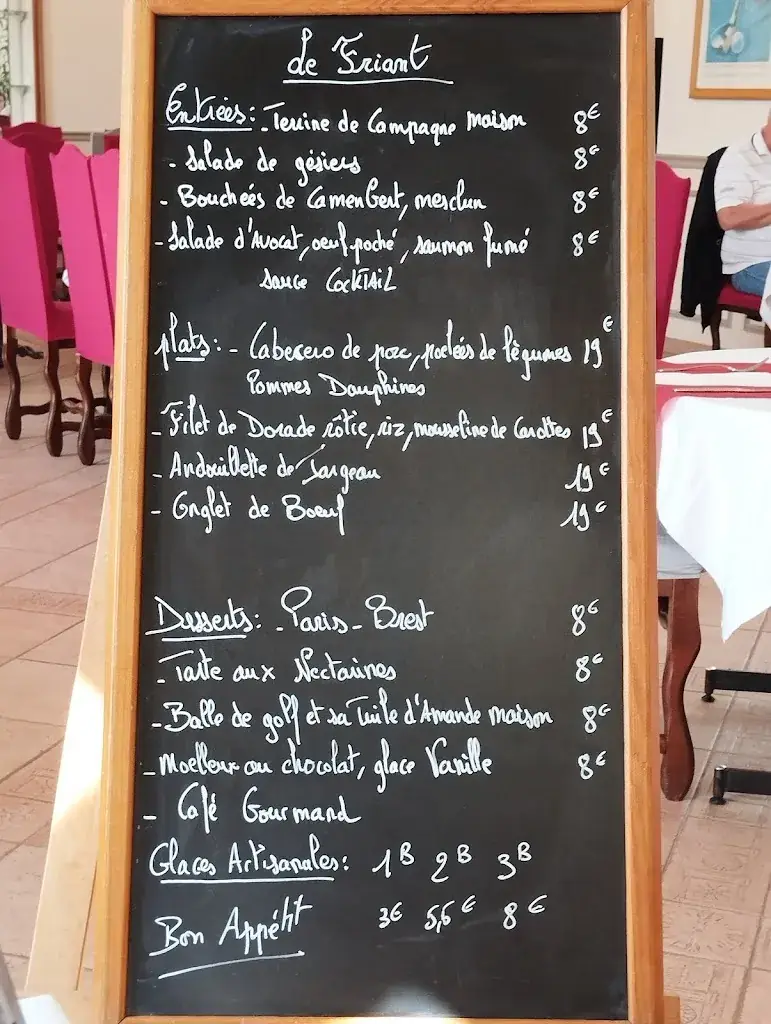 Le Friant
Entrées: - Terrine de Campagne maison 8€
- Salade de gésiers 8€
- Bouchées de Camenbert, mesclun 8€
- Salade d'Avocat, oeuf poché, saumon fumé 8€
sauce COCKTAIL
plats: - Cabecero de porc, poelées de légumes 19€
Pommes Dauphines
- Filet de Dorade rôtie, riz, mousseline de Carottes 19€
- Andouillette de Jargeau 19€
- Onglet de Boeuf 19€
Desserts: - Paris-Brest 8€
- Tarte aux Nectarines 8€
- Balle de golf et sa Tuile d'Amande maison 8€
- Moelleux au chocolat, glace Vanille 8€
- Café Gourmand
Glaces Artisanales: 1B 2B 3B
3€ 5,6€ 8€
Bon Appétit